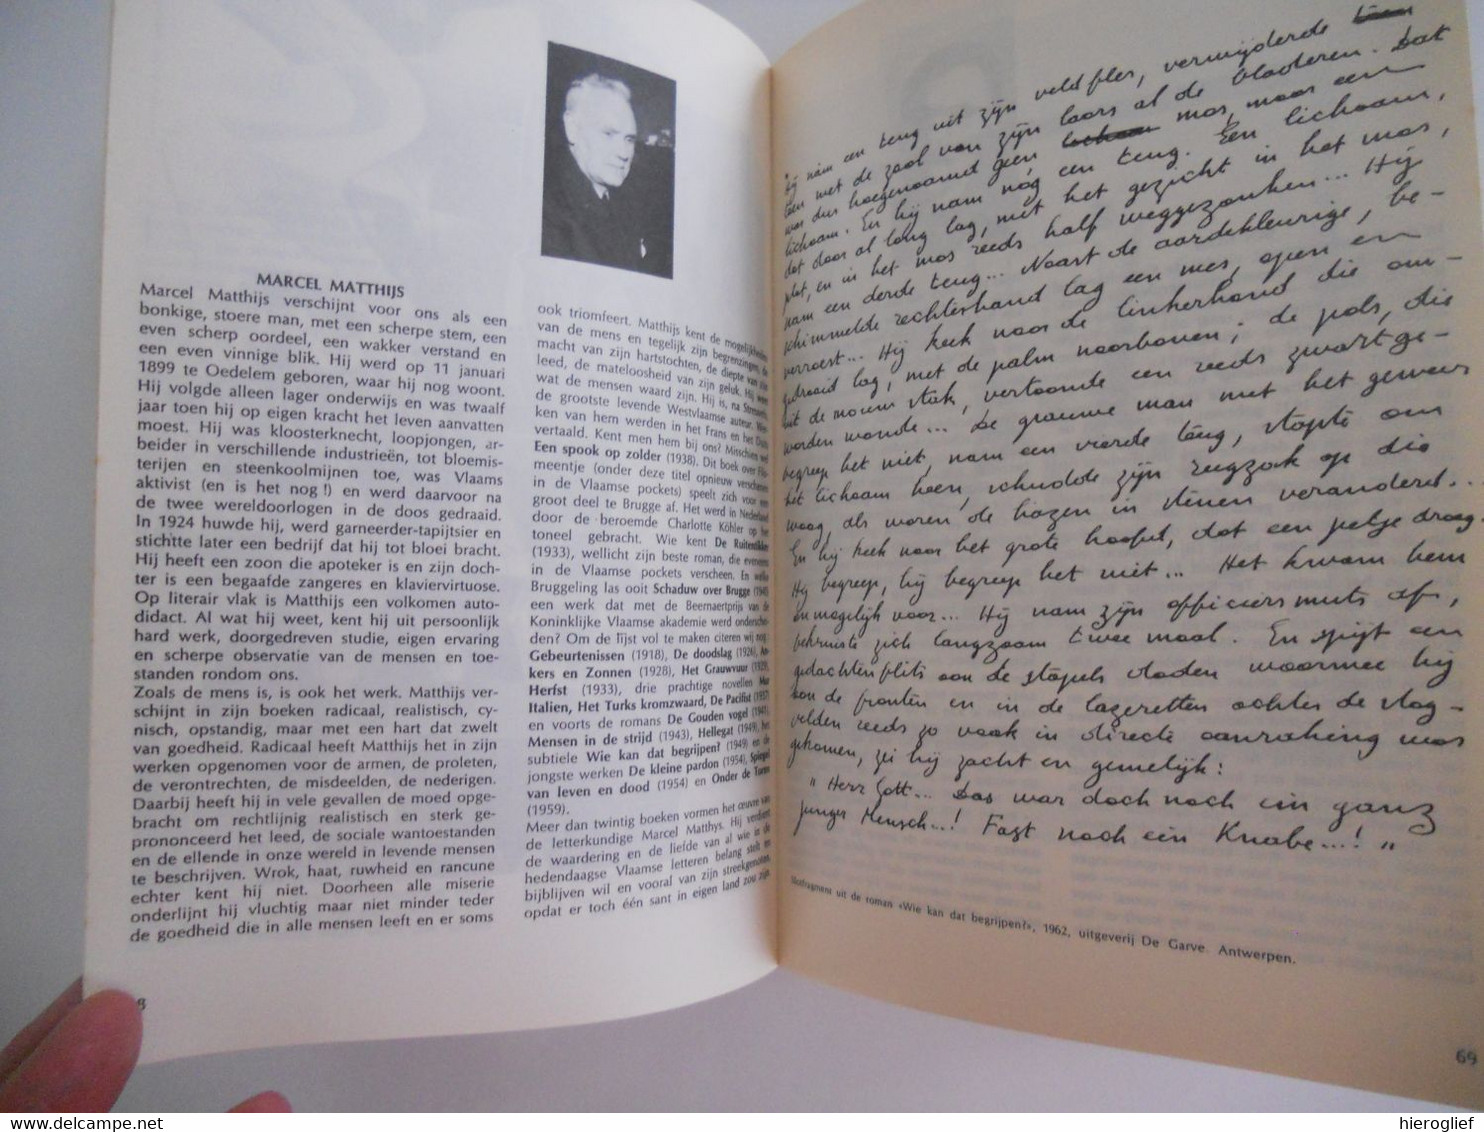 MARCEL MATTHIJS
Marcel Matthijs verschijnt voor ons als een
bonkige, stoere man, met een scherpe stem, een
even scherp oordeel, een wakker verstand en
een even vinnige blik. Hij werd op 11 januari
1899 te Oedelem geboren, waar hij nog woont.
Hij volgde alleen lager onderwijs en was twaalf
jaar toen hij op eigen kracht het leven aanvatten
moest. Hij was kloosterknecht, loopjongen, ar-
beider in verschillende industrieën, tot bloemis-
terijen en steenkoolmijnen toe, was Vlaams
aktivist (en is het nog!) en werd daarvoor na
de twee wereldoorlogen in de doos gedraaid.
In 1924 huwde hij, werd garneerder-tapijtsier en
stichtte later een bedrijf dat hij tot bloei bracht.
Hij heeft een zoon die apoteker is en zijn doch-
ter is een begaafde zangeres en klaviervirtuose.
Op literair vlak is Matthijs een volkomen auto-
didact. Al wat hij weet, kent hij uit persoonlijk
hard werk, doorgedreven studie, eigen ervaring
en scherpe observatie van de mensen en toe-
standen rondom ons.
Zoals de mens is, is ook het werk. Matthijs ver-
schijnt in zijn boeken radicaal, realistisch, cy-
nisch, opstandig, maar met een hart dat zwelt
van goedheid. Radicaal heeft Matthijs het in zijn
werken opgenomen voor de armen, de proleten,
de verontrechten, de misdeelden, de nederigen.
Daarbij heeft hij in vele gevallen de moed opge-
bracht om rechtlijnig realistisch en sterk ge-
prononceerd het leed, de sociale wantoestanden
en de ellende in onze wereld in levende mensen
te beschrijven. Wrok, haat, ruwheid en rancune
echter kent hij niet. Doorheen alle miserie
onderlijnt hij vluchtig maar niet minder teder
de goedheid die in alle mensen leeft en er soms
ook triomfeert. Matthijs kent de mogelijkheden
van de mens en tegelijk zijn begrenzingen, de
macht van zijn hartstochten, de diepte van zijn
leed, de mateloosheid van zijn geluk. Hij weet
wat de mensen waard zijn. Hij is, na Streuvels,
de grootste levende Westvlaamse auteur. Wer-
ken van hem werden in het Frans en het Duits
vertaald. Kent men hem bij ons? Misschien wel
Een spook op zolder (1938). Dit boek over Filo-
meentje (onder deze titel opnieuw verschenen
in de Vlaamse pockets) speelt zich voor een
groot deel te Brugge af. Het werd in Nederland
door de beroemde Charlotte Köhler op het
toneel gebracht. Wie kent De Ruitentikker
(1933), wellicht zijn beste roman, die eveneens
in de Vlaamse pockets verscheen. En welke
Bruggeling las ooit Schaduw over Brugge (1940)
een werk dat met de Beernaertprijs van de
Koninklijke Vlaamse akademie werd onderschei-
den? Om de lijst vol te maken citeren wij nog:
Gebeurtenissen (1918), De doodslag (1926), An-
kers en Zonnen (1928), Het Grauwvuur (1929),
Herfst (1933), drie prachtige novellen Mus
Italien, Het Turks kromzwaard, De Pacifist (1937)
en voorts de romans De Gouden vogel (1941),
Mensen in de strijd (1943), Hellegat (1949), het
subtiele Wie kan dat begrijpen? (1949) en de
jongste werken De kleine pardon (1954), Spiegel
van leven en dood (1954) en Onder de Toren
(1959).
Meer dan twintig boeken vormen het œuvre van
de letterkundige Marcel Matthys. Hij verdient
de waardering en de liefde van al wie in de
hedendaagse Vlaamse letteren belang stelt en
bijblijven wil en vooral van zijn streekgenoten,
opdat er toch één sant in eigen land zou zijn.
8
"Hij nam een teug uit zijn veldfles, verwijderde
teen met de zool van zijn laars al de bladeren. Dat
was dus hoegenaamd geen mos, maar een
lichaam. En hij nam nog een teug. Een lichaam,
dat daar al lang lag, met het gezicht in het mos,
plat, en in het mos reeds half weggezonken... Hij
nam een derde teug... Naast de aardekleurige, be-
schimmelde rechterhand lag een mes, open en
verroest... Hij keek naar de linkerhand die om-
gedraaid lag, met de palm naarboven; de pols, die
uit de mouw stak, vertoonde een reeds zwart ge-
worden wonde... De grauwe man met het geweer
begreep het niet, nam een vierde teug, stapte om
het lichaam heen, schudde zijn rugzak op die
woog, als waren de hazen in stenen veranderd...
En hij keek naar het grote hoofd, dat een petje droeg.
Hij begreep, hij begreep het niet... Het kwam hem
onmogelijk voor... Hij nam zijn officiersmuts af,
bekruiste zich langzaam twee maal. En spijt een
gedachtenflits aan de stapels doden waarmee hij
aan de fronten en in de lazeretten achter de slag-
velden reeds zo vaak in directe aanraking was
gekomen, zei hij zacht en gemelijk:
"Herr Gott... Das war doch noch ein ganz
junger Mensch...! Fast noch ein Knabe...!"
Slotfragment uit de roman «Wie kan dat begrijpen?», 1962, uitgeverij De Garve. Antwerpen.
69
hieroglief